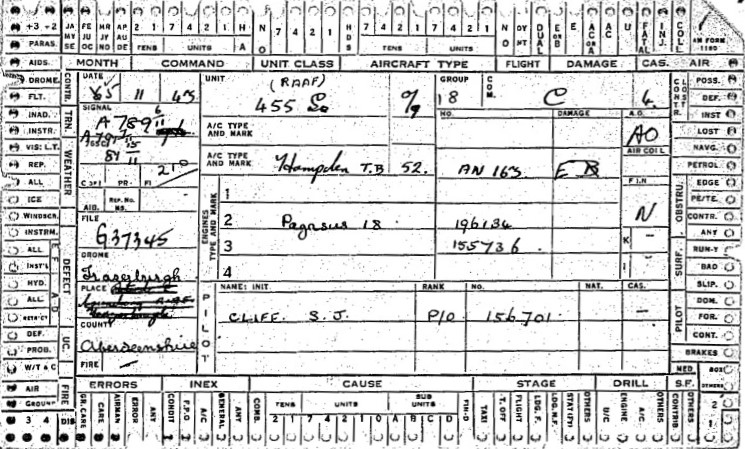 +3 +2 JA MY SE FE JU OC MR JY NO AP AU DE 2 1 7 4 2 1 H A N O 7 4 2 1 H D S 7 4 2 1 7 4 2 1 N O DY NT DUAL E or B E AC or A FATAL INJ. COLL AM FORM 1180
PARAS. TENS UNITS TENS UNITS
AIDS. MONTH COMMAND UNIT CLASS AIRCRAFT TYPE FLIGHT DAMAGE CAS. AIR
DROME. CONTR. DATE 11 43 UNIT (RAAF) GROUP COM. CONTR. CLOSTR. POSS.
FLT. 455 18 C 4 DEF.
INAD. TRN. SIGNAL A/C TYPE AND MARK NO. DAMAGE A.O. INST
INSTR. A 789 AO LOST
VIS: L.T. WEATHER AIR COIL NAVG.
REP. A/C TYPE AND MARK Hampden T.B 52. AN 163 E B PETROL
ALL C OF I PR. FI 210 F.I.N OBSTRU. EDGE
ICE AIB. REP. NO. NS. ENGINES TYPE AND MARK 1 N PE/TE.
WINDSCR. FILE 2 Pegasus 18 196134 CONTR.
INSTRM. G37345 3 155736 K - ANY
ALL DEFECT DROME 4 I - SURF. RUN-Y
INST'L Fraserburgh BAD
HYD. PLACE PILOT NAME: INIT. RANK NO. NAT. CAS. SLIP.
ALL CLIFF. S.J. P/O 156701 - PILOT DOM.
RETA-CT FOR.
DEF. UC. COUNTY CONT.
PROB. Aberdeenshire BRAKES
W/T & C FIRE - MED BOX
AIR FIRE ERRORS INEX CAUSE STAGE DRILL S.F. OTHERS
GROUND GR. CARE CARE AIRMAN ERROR ANY CONDIT F.P.O A/C GENERAL ANY COMB. TENS UNITS SUB UNITS FIN-O TAXI T. OFF FLIGHT LDG. F. LDG. N.F. STAT (FY) OTHERS U/C ENGINE A/C. OTHERS CONTRIB. OTHERS 2
3 4 DIS 2 1 7 4 2 1 0 A B C D 1